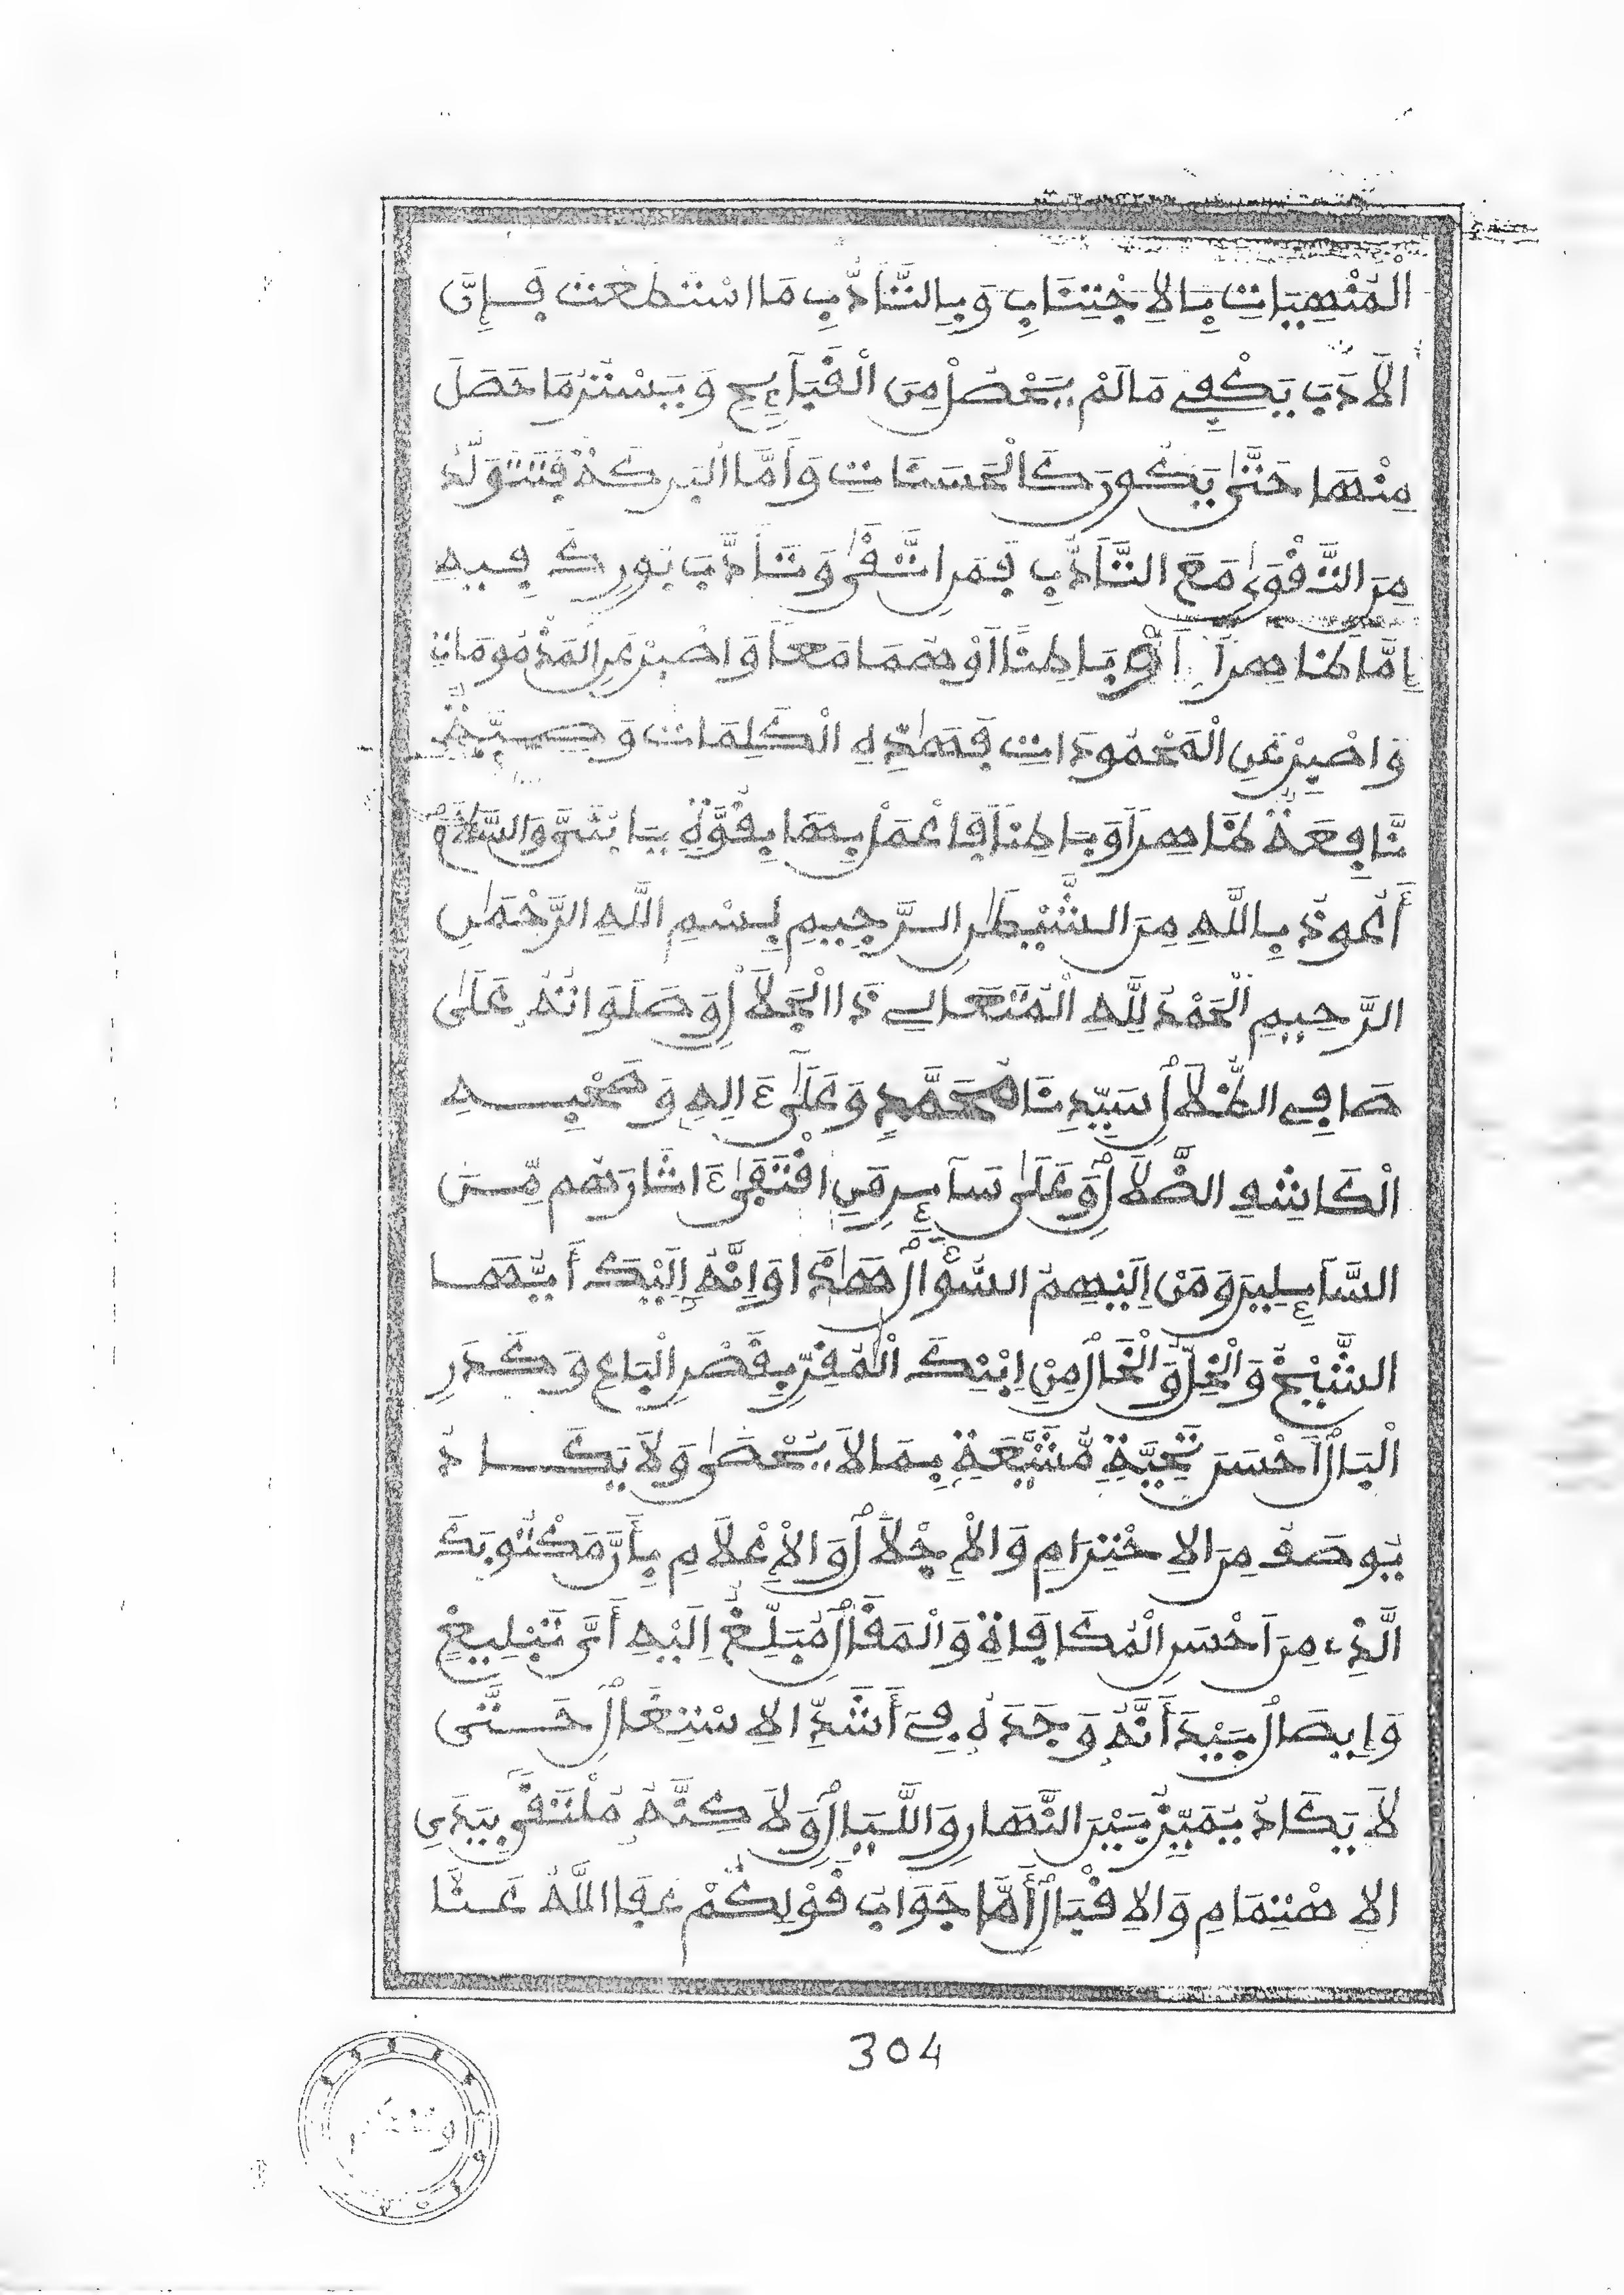 الْمَنْهِيَاتِ بِالِاجْتِنَابِ وَبِالتَّأَدُّبِ مَا اسْتَطَعْتَ فَإِنَّ
الْأَدَبَ يَكْفِي مَا لَمْ يَحْصُلْ مِنَ الْقَبَآئِحِ وَيَسْتُرُ مَا حَصَلَ
مِنْهَا حَتَّىٰ يَكُونَ كَالْحَسَنَاتِ وَأَمَّا الْبَرَكَةُ فَتَتَوَلَّدُ
مِنَ التَّقْوَىٰ مَعَ التَّأَدُّبِ فَمَنِ اتَّقَىٰ وَتَأَدَّبَ بُورِكَ فِيهِ
إِمَّا ظَاهِراً أَوْ بَاطِناً أَوْ هُمَا مَعاً وَاصْبِرْ عَنِ الْمَذْمُومَاتِ
وَاصْبِرْ عَنِ الْمَحْمُودَاتِ فَهَٰذِهِ الْكَلِمَاتُ وَصِيَّةٌ
نَّافِعَةٌ ظَاهِراً وَبَاطِناً فَاعْمَلْ بِهَا بِقُوَّةٍ يَا بُنَيَّ وَالسَّلَامُ
أَعُوذُ بِاللَّهِ مِنَ الشَّيْطَٰنِ الرَّجِيمِ بِسْمِ اللَّهِ الرَّحْمَٰنِ
الرَّحِيمِ الْحَمْدُ لِلَّهِ الْمُتَعَالِي ذَا الْجَلَالِ وَصَلَوَاتُهُ عَلَىٰ
صَافِي الظِّلَالِ سَيِّدِنَا مُحَمَّدٍ وَعَلَىٰ ءَالِهِ وَصَحْبِهِ
الْكَاشِفِ الضَّلَالِ وَعَلَىٰ سَآئِرِ مَنِ اقْتَفَىٰ ءَاثَارَهُم مِّنَ
السَّآئِلِينَ وَمَنْ إِلَيْهِمُ السُّؤَالُ هَٰذَا وَإِنَّهُ إِلَيْكَ أَيُّهَا
الشَّيْخُ وَالْخِلُّ وَالْخَالُ مِنِ ابْنِكَ الْمُقِرِّ بِقَصْرِ الْبَاعِ وَكَدَرِ
الْبَالِ أَحْسَنَ تَحِيَّةٍ مُّشَيَّعَةٍ بِمَا لَا يُحْصَىٰ وَلَا يَكَادُ
يُوصَفُ مِنَ الِاحْتِرَامِ وَالْإِجْلَالِ وَالْإِعْلَامِ بِأَنَّ مَكْتُوبَكَ
الَّذِي مِنَ احْسَنِ الْمُكَافَاةِ وَالْمَقَالِ مُبَلَّغٌ إِلَيْهِ أَيَّ تَبْلِيغٍ
وَإِيصَالٍ بَيْدَ أَنَّهُ وَجَدَهُ فِي أَشَدِّ الِاشْتِغَالِ حَتَّى
لَا يَكَادُ يُمَيِّزُ بَيْنَ النَّهَارِ وَاللَّيَالِ وَلَٰكِنَّهُ مُلْتَقًى بِيَدَيِ
الِاهْتِمَامِ وَالِاقْبَالِ أَمَّا جَوَابُ قَوْلِكُمْ عَفَا اللَّهُ عَنَّا
304